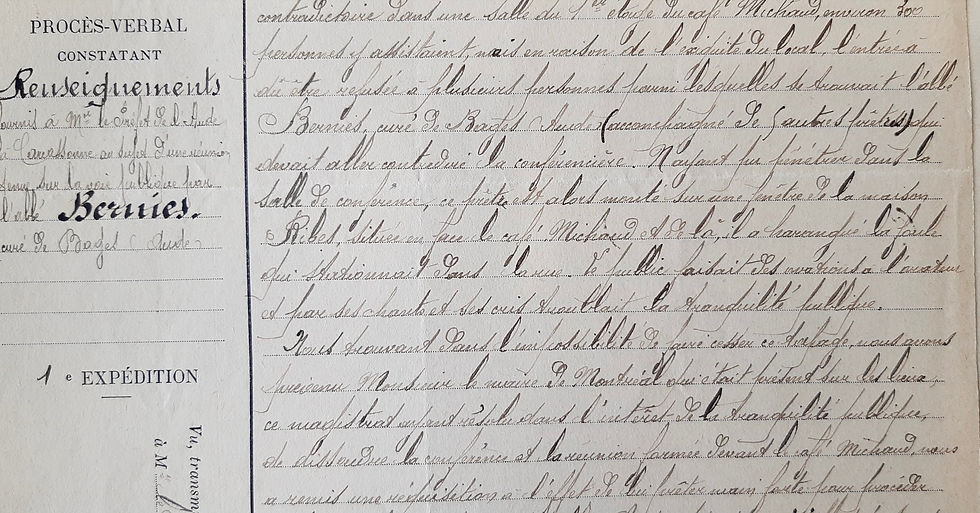 PROCÈS-VERBAL
CONSTATANT
Renseignements
fournis à Mr le Préfet de l'Aude
à Carcassonne au sujet d'une réunion
tenue sur la voie publique par
l'abbé Bernies.
curé de Bages (Aude)
1e EXPÉDITION
Vu, transm
à M
contradictoire dans une salle du 1er étage du café Michaud, environ 300
personnes y assistaient, mais en raison de l'exiguité du local l'entrée a
dû être refusée à plusieurs personnes parmi lesquelles se trouvait l'abbé
Bernies, curé de Bages Aude (accompagné de autres prêtres) qui
devait aller contredire la conférencière. N'ayant pu pénétrer dans la
salle de conférence, ce prêtre est alors monté sur une fenêtre de la maison
Ribes, située en face le café Michaud et de là, il a harangué la foule
qui stationnait dans la rue. Le public faisait des ovations à l'orateur
et par ses chants et ses cris troublait la tranquilité publique.
Nous trouvant dans l'impossibilité de faire cesser ce tapage, nous avons
prévenu Monsieur le maire de Montréal qui était présent sur les lieux,
ce magistrat ayant résolu dans l'intérêt de la tranquilité publique,
de dissoudre la conférence et la réunion formée devant le café Michaud, nous
a remis une réquisition à l'effet de lui prêter main forte pour procéder